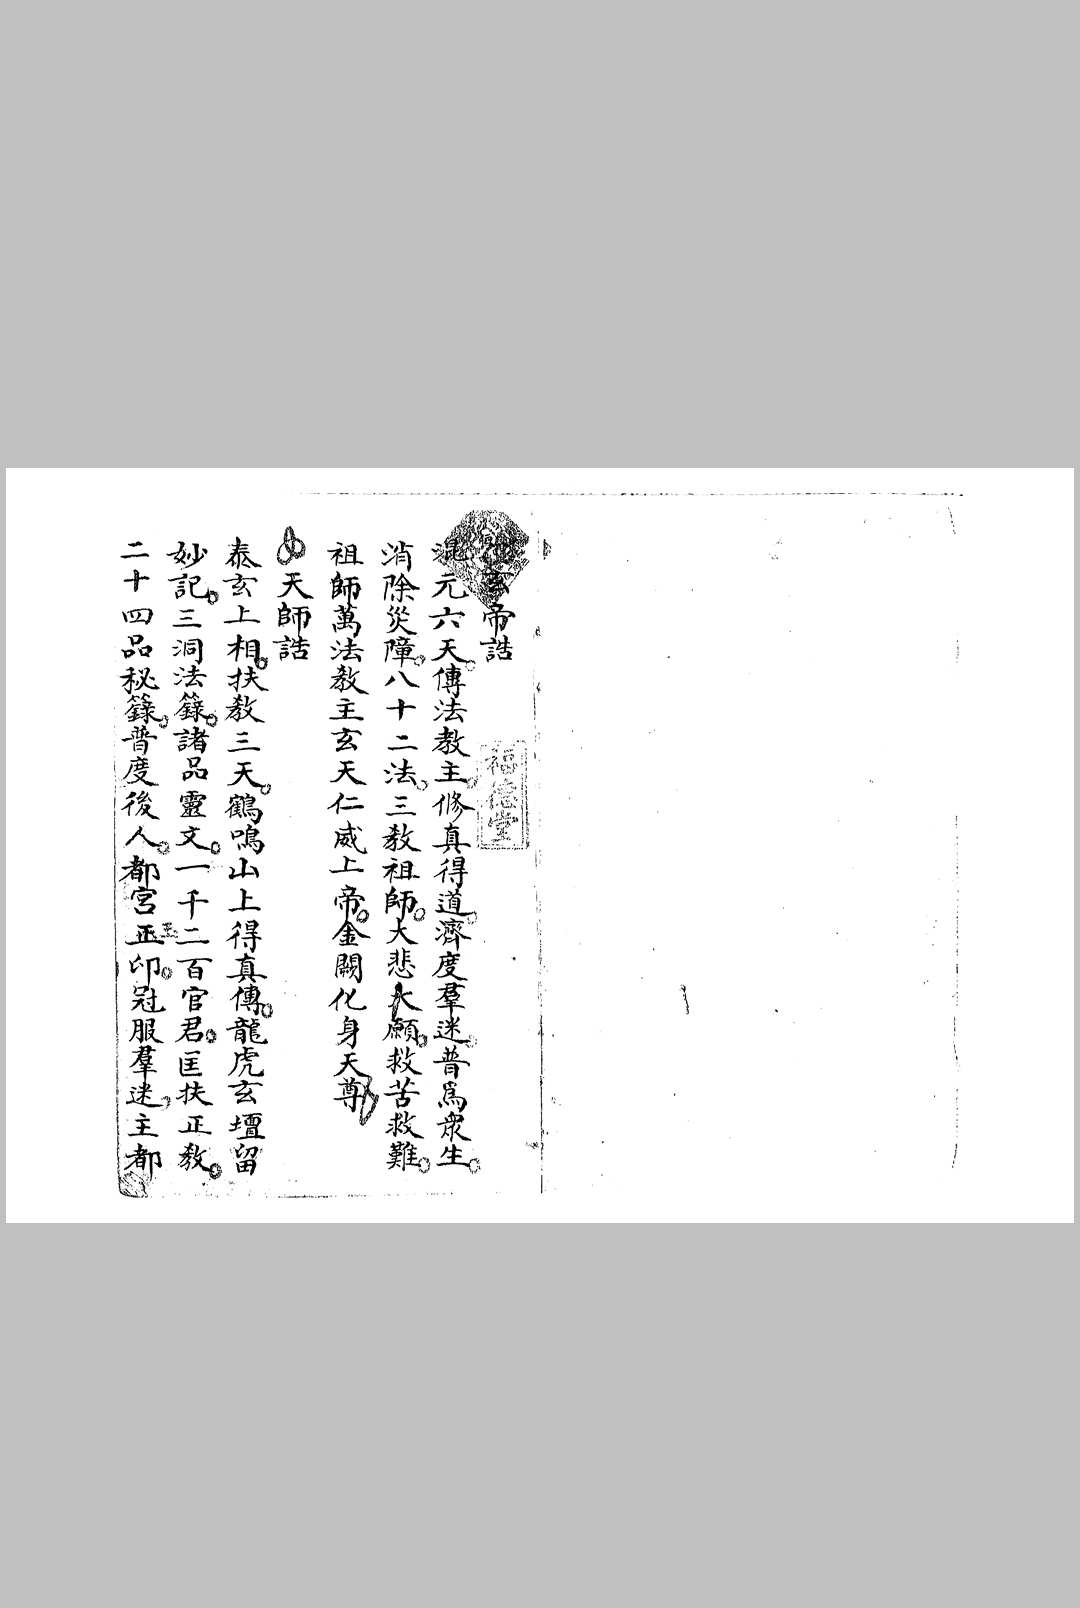 玄帝誥
混元六天。傳法教主。修真得道。濟度羣迷。普爲衆生。
消除災障。八十二法。三教祖師。大悲大願。救苦救難。
祖師萬法教主玄天仁威上帝。金闕化身天尊
天師誥
泰玄上相。扶教三天。鶴鳴山上得真傳。龍虎玄壇留
妙記。三洞法籙。諸品靈文。一千二百官君。匡扶正教。
二十四品秘籙。普度後人。都宮玉印。冠服羣迷。主都
玉
福德堂